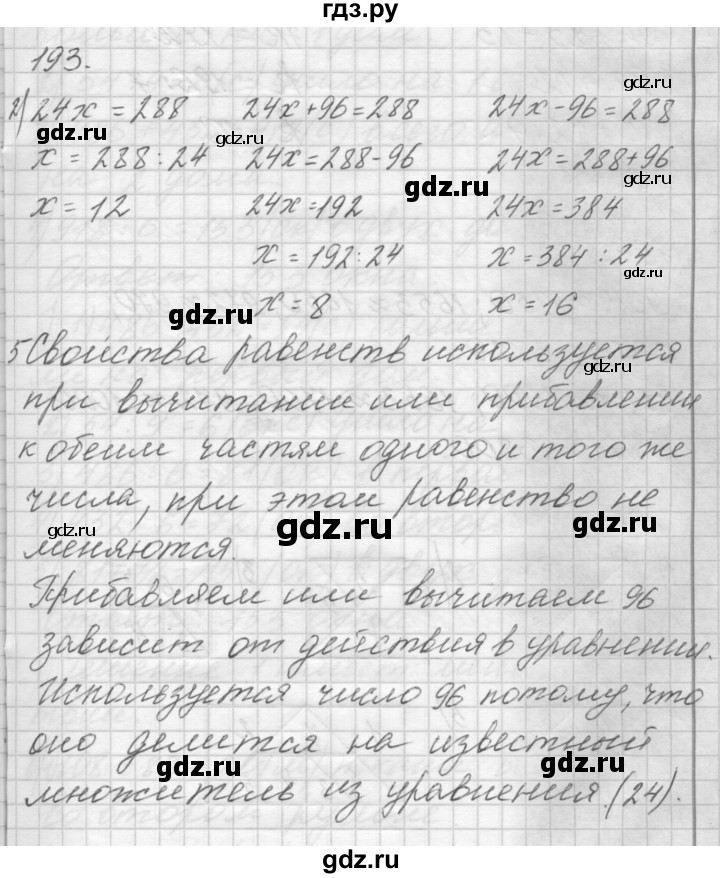 гдз.ру
193.
2) 24x = 288 24x+96=288 24x-96=288
x = 288:24 24x=288-96 24x=288+96
x = 12 24x=192 24x=384
x=192:24 x=384:24
x=8 x=16
5 Свойства равенств используется
при вычитании или прибавлении
к обеим частям одного и того же
числа, при этом равенство не
меняются.
Прибавляем или вычитаем 96
зависит от действия в уравнении.
Используется число 96 потому, что
оно делится на известный
множитель из уравнения (24).
gdz.ru
gdz.ru
gdz.ru
gdz.ru
gdz.ru
gdz.ru
gdz.ru
gdz.ru
gdz.ru
gdz.ru
gdz.ru
gdz.ru
gdz.ru
gdz.ru